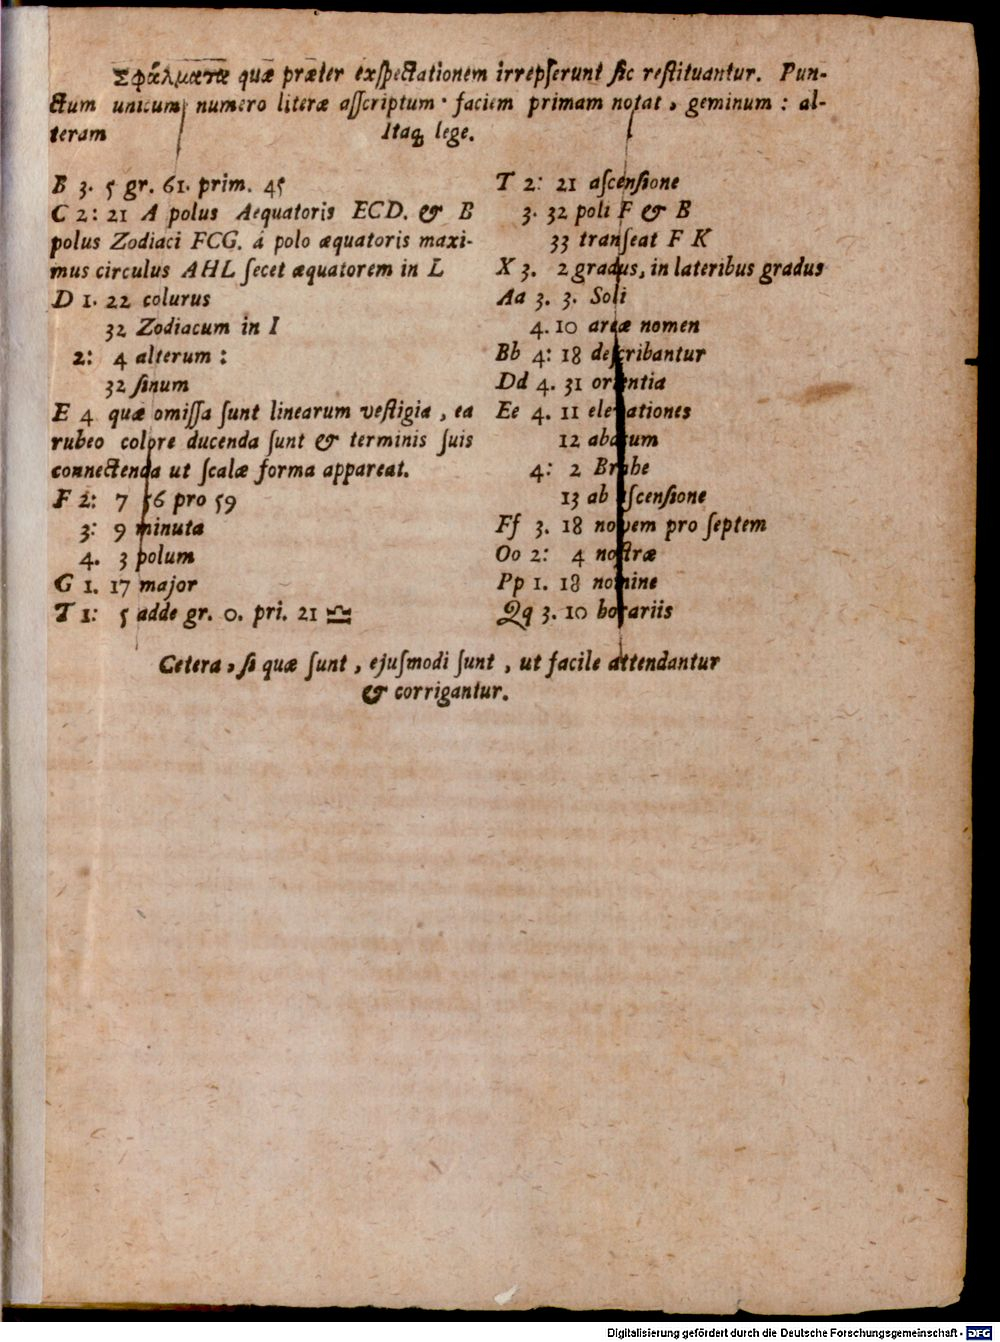 Σφάλματα quæ præter exſpectationem irrepſerunt ſic reſtituantur. Pun-
ctum unicum numero literæ aſſcriptum · faciem primam notat, geminum : al-
teram Itaq; lege.
B 3. 5 gr. 61. prim. 45
C 2: 21 A polus Aequatoris ECD. & B
polus Zodiaci FCG. á polo æquatoris maxi-
mus circulus AHL ſecet æquatorem in L
D 1. 22 colurus
32 Zodiacum in I
2: 4 alterum :
32 ſinum
E 4 quæ omiſſa ſunt linearum veſtigia, ea
rubeo colore ducenda ſunt & terminis ſuis
connectenda ut ſcalæ forma appareat.
F 2: 7 56 pro 59
3: 9 minuta
4. 3 polum
G 1. 17 major
T 1: 5 adde gr. 0. pri. 21 ♎
T 2: 21 aſcenſione
3. 32 poli F & B
33 tranſeat F K
X 3. 2 gradus, in lateribus gradus
Aa 3. 3. Soli
4. 10 areæ nomen
Bb 4: 18 deſcribantur
Dd 4. 31 orientia
Ee 4. 11 elevationes
12 abacum
4: 2 Brahe
13 ab aſcenſione
Ff 3. 18 novem pro ſeptem
Oo 2: 4 noſtræ
Pp 1. 18 nomine
Qq 3. 10 horariis
Cetera, ſi quæ ſunt, ejuſmodi ſunt, ut facile attendantur
& corrigantur.
Digitalisierung gefördert durch die Deutsche Forschungsgemeinschaft - DFG